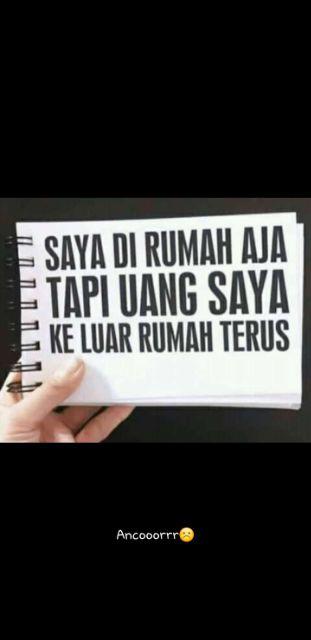 SAYA DI RUMAH AJA
TAPI UANG SAYA
KE LUAR RUMAH TERUS
Ancooorrr☹️